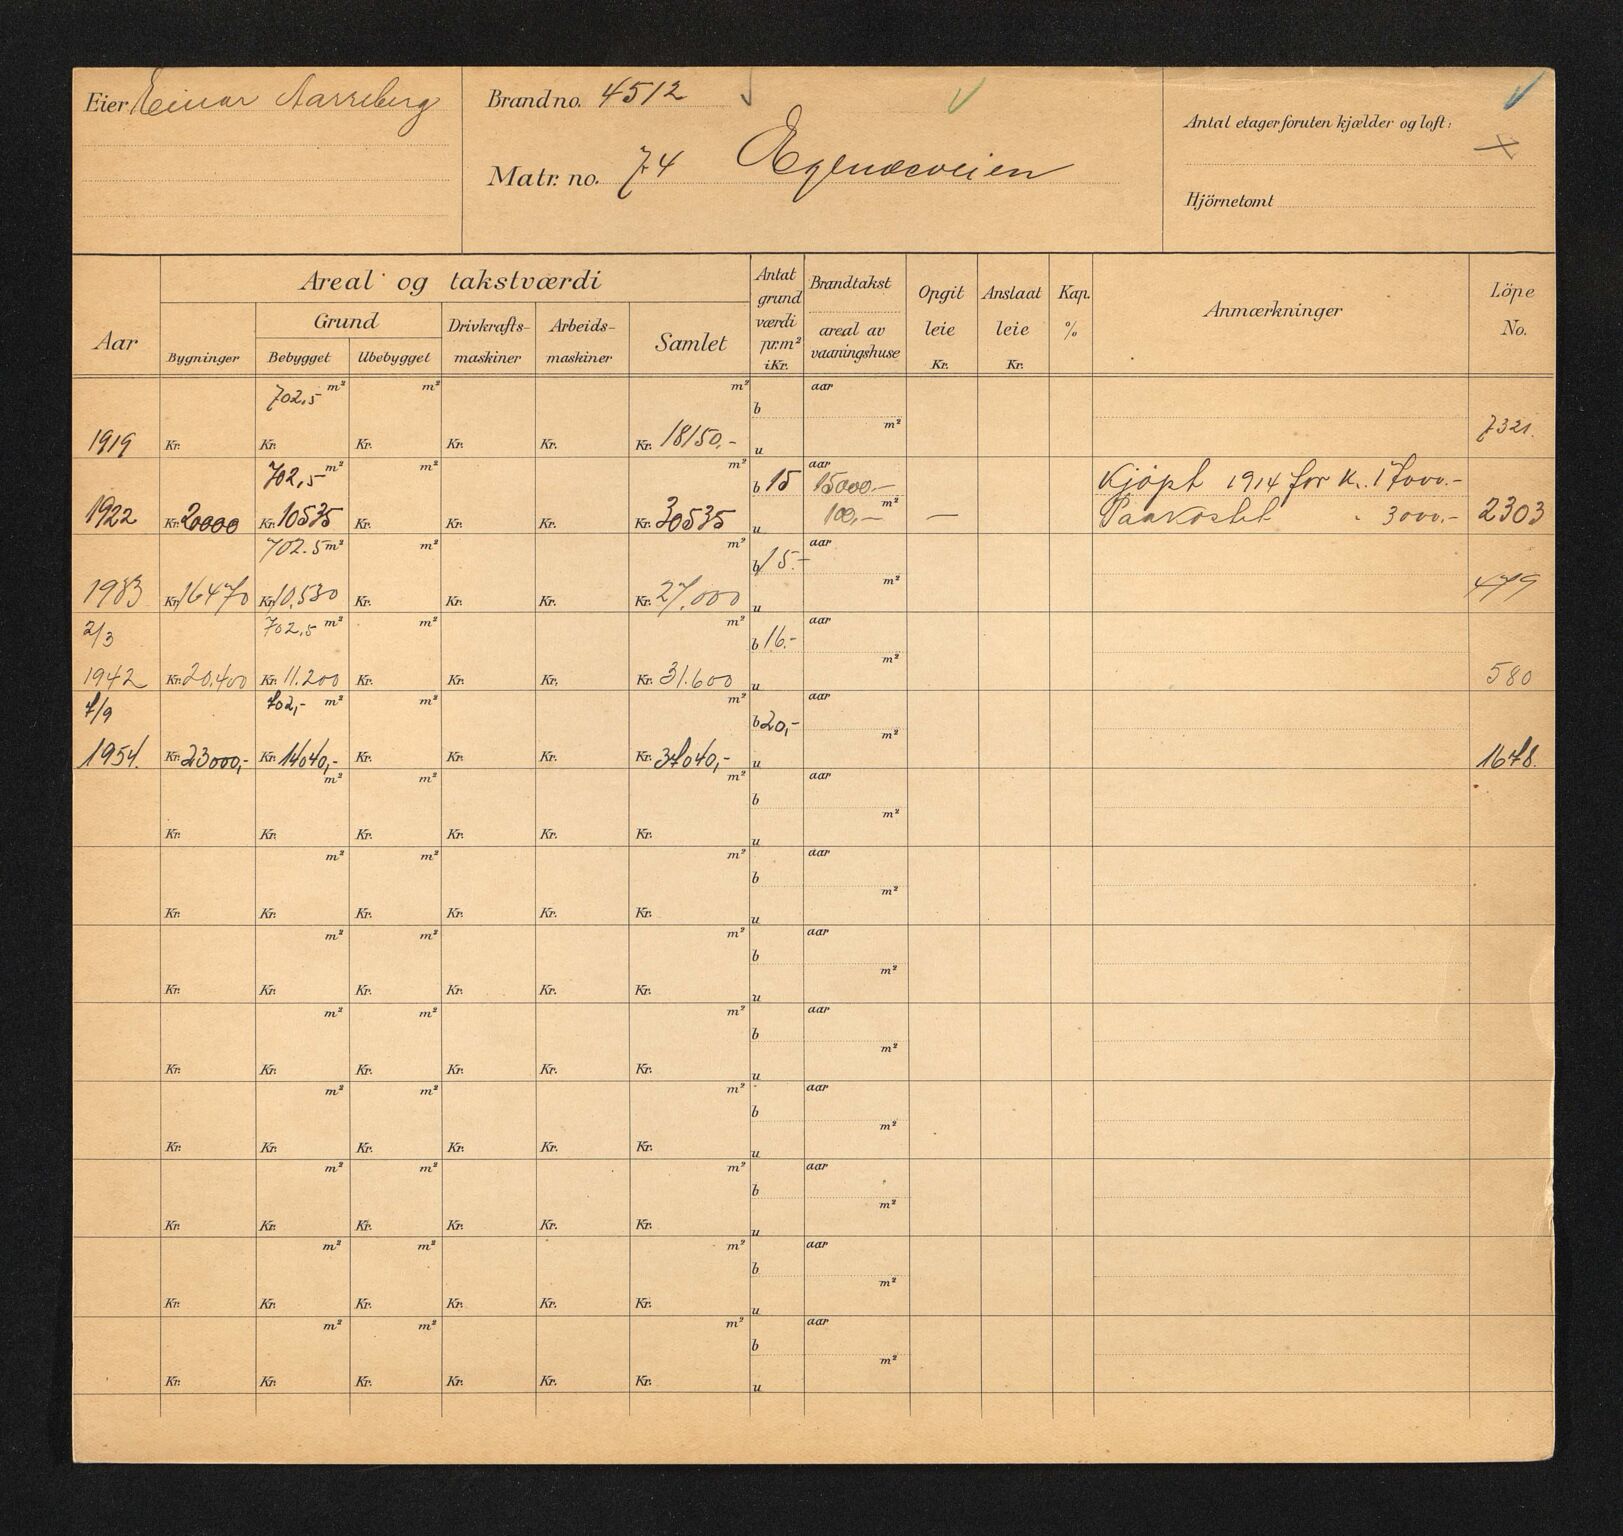 Eier Einar Aarreberg
Brand no. 4512
Matr. no. 74 Egenæsveien
Antal etager foruten kjælder og loft:
Hjörnetomt
Aar
Areal og takstværdi
Grund
Bygninger
Bebygget
Ubebygget
Drivkrafts-
maskiner
Arbeids-
maskiner
Samlet
Antat
grund
værdi
pr.m²
i Kr.
Brandtakst
areal av
vaaningshuse
Opgit
leie
Kr.
Anslaat
leie
Kr.
Kap.
%
Anmærkninger
Löpe
No.
702,5 m² m² m² b aar
m²
1919 Kr. Kr. Kr. Kr. Kr. Kr. 18150,- u 7321.
702,5 m² m² m² b 15 aar 15000.- Kjöpt 1914 for K. 17000.-
1922 Kr. 20000 Kr. 10535 Kr. Kr. Kr. Kr. 30535 u 100,- m² — Paakostet " 3000.- 2303
702.5 m² m² m² b 15.- aar
m²
1933 Kr. 16470 Kr. 10.530 Kr. Kr. Kr. Kr. 27.000 u 479
2/3 702,5 m² m² m² b 16.- aar
m²
1942 Kr. 20.400 Kr. 11.200 Kr. Kr. Kr. Kr. 31.600 u 580
7/9 702,- m² m² m² b 20,- aar
m²
1954. Kr. 23000,- Kr. 14040,- Kr. Kr. Kr. Kr. 37040,- u 1678.
m² m² m² b aar
m²
Kr. Kr. Kr. Kr. Kr. Kr. u
m² m² m² b aar
m²
Kr. Kr. Kr. Kr. Kr. Kr. u
m² m² m² b aar
m²
Kr. Kr. Kr. Kr. Kr. Kr. u
m² m² m² b aar
m²
Kr. Kr. Kr. Kr. Kr. Kr. u
m² m² m² b aar
m²
Kr. Kr. Kr. Kr. Kr. Kr. u
m² m² m² b aar
m²
Kr. Kr. Kr. Kr. Kr. Kr. u
m² m² m² b aar
m²
Kr. Kr. Kr. Kr. Kr. Kr. u
m² m² m² b aar
m²
Kr. Kr. Kr. Kr. Kr. Kr. u